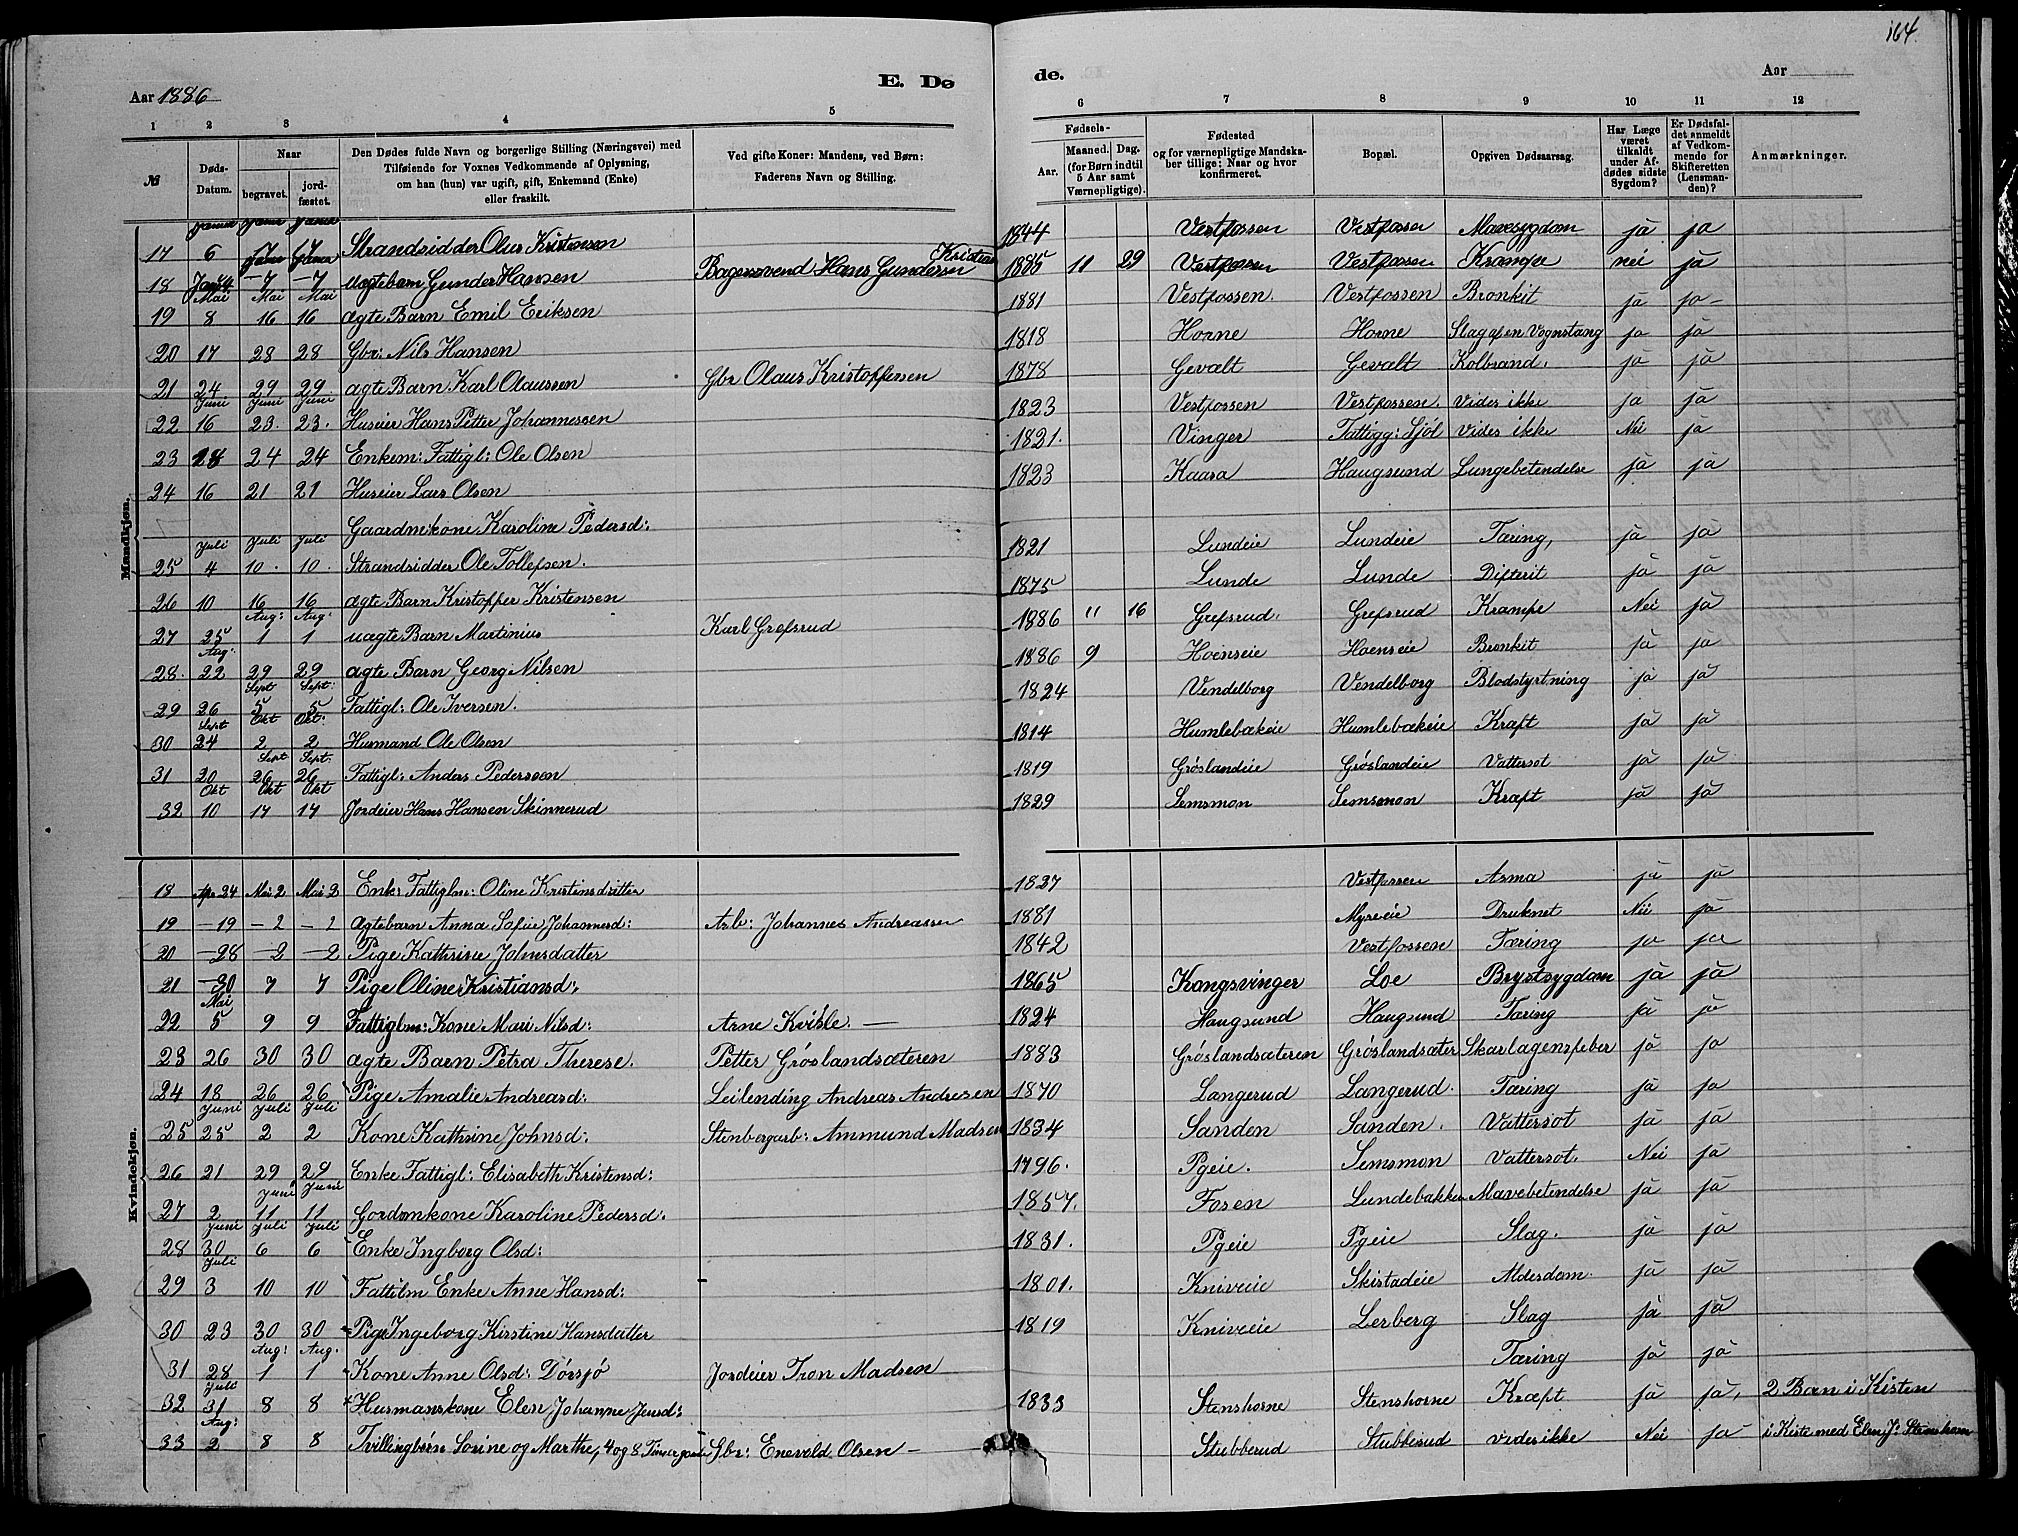 164.
E. Dø de.
Aar 1886
Aar
1 2 3 4 5 6 7 8 9 10 11 12
№
Døds-Datum.
Naar
begravet.
jord-fæstet.
Den Dødes fulde Navn og borgerlige Stilling (Næringsvei) med
Tilføiende for Voxnes Vedkommende af Oplysning,
om han (hun) var ugift, gift, Enkemand (Enke)
eller fraskilt.
Ved gifte Koner: Mandens, ved Børn:
Faderens Navn og Stilling.
Fødsels-
Aar.
Maaned. Dag.
(for Børn indtil
5 Aar samt
Værnepligtige).
Fødested
og for værnepligtige Mandska-
ber tillige: Naar og hvor
konfirmeret.
Bopæl.
Opgiven Dødsaarsag.
Har Læge
været
tilkaldt
under Af-
dødes sidste
Sygdom?
Er Dødsfal-
det anmeldt
af Vedkom-
mende for
Skifteretten
(Lensman-
den)?
Anmærkninger.
Mandkjøn.
17 6 Strandsidder Olus Kristensen 1844 Vestfossen Vestfossen Mavesygdom ja ja
18 Jan 4 -7 -7 uægtebarn Gunder Hansen Bagersvend Hans Gundersen Kristian 1885 11 29 Vestfossen Vestfossen Krampe nei ja
Mai Mai Mai
19 8 16 16 ægte Barn Emil Eriksen 1881 Vestfossen. Vestfossen Bronkit ja ja-
20 17 28 28 Gbr: Nils Hansen 1818 Horne Horne Slag af en Vognstang ja ja
21 24 29 29 ægte Barn Karl Olaussen Gbr Olaus Kristoffersen 1878 Gevalt Gevalt Kolbrand. ja ja
Juni Juni Juni
22 16 23. 23. Huseier Hans Petter Johannessen 1823 Vestfossen Vestfossen. Vides ikke ja ja
23 18 24 24 Enkem: Fattigl: Ole Olsen 1821. Vinger Fattigg: Sjöl Vides ikke Nei ja
24 16 21 21 Huseier Lars Olsen 1823 Kaasa Haugsund Lungebetendelse ja ja
Gaardmkone Karoline Pedersd:
Juli Juli Juli
25 4 10. 10. Strandsidder Ole Tollefsen. 1821 Lundeie Lundeie Tæring, ja ja
26 10 16 16 ægte Barn Kristoffer Kristensen 1875 Lunde Lunde Difterit ja ja
Aug: Aug:
27 25 1 1 uægte Barn Martinius Karl Grefsrud 1886 11 16 Grefsrud. Grefsrud Krampe Nei ja
Aug:
28. 22 29 29 ægte Barn Georg Nilsen 1886 9 Hoenseie Hoenseie Bronkit ja ja
Sept Sept:
29 26 5 5 Fattigl: Ole Iversen. 1824 Vendelborg Vendelborg Blodstyrtning ja ja
Sept Okt Okt:
30 24 2 2 Husmand Ole Olsen 1814 Humlebækeie Humlebækeie Kræft ja ja
Sept Sept.
31 20 26 26 Fattigl: Anders Pedersen 1819 Gröslandeie Gröslandeie Vattersot ja ja
Okt Okt Okt
32 10 17 17 Jordeier Hans Hansen Skinnerud 1829 Semsmon Semsmon Kræft ja ja
Kvindekjøn.
18 Apr 24 Mai 2 Mai 2 Enke Fattiglm: Oline Kristensdatter 1827 Vestfossen Asma ja ja
19 -19 -2 -2 Ægtebarn Anna Sofie Johannesd: Arb: Johannes Andreassen 1881 Myreeie Druknet Nei ja
20 -28 -2 -2 Pige Kathrine Johnsdatter 1842 Vestfossen Tæring ja ja
21 -30 7 7 Pige Oline Kristiansd: 1865 Kongsvinger Loe Brystsygdom ja ja
Mai
22 5 9 9 Fattiglm: Kone Mari Nilsd: Arne Kvisle. - 1824 Haugsund Haugsund Tæring ja ja
23 26 30 30 ægte Barn Petra Therese. Petter Gröslandsæteren 1883 Gröslandsæteren Gröslandsæter Skarlagensfeber ja ja
24 18 26 26 Pige Amalie Andreasd: Leilending Andreas Andresen 1870 Langerud Langerud. Tæring ja ja
Juni Juli Juli
25 25 2 2 Kone Kathrine Johnsd: Stenbergarb: Ammund Madsen 1834 Sanden Sanden. Vattersot ja ja
26 21 29 29 Enke Fattigl: Elisabeth Kristensd: 1796. Pgeie. Semsmon Vattersot. Nei ja
Juni Juni
27 2 11 11 Gordmkone Karoline Pedersd: 1857. Fosen Lundebakken Mavebetendelse ja ja
Juni Juli Juli
28 30 6 6 Enke Ingborg Olsd: 1831. Pgeie Pgeie Slag. ja ja
Juli
29 3 10 10 Fattilm Enke Anne Hansd: 1801. Kniveie Skistadeie Aldersdom. ja ja
30 23 30 30 Pige Ingeborg Kirstine Hansdatter 1819 Kniveie Lerberg Slag ja ja
Aug: Aug.
31 28 1 1 Kone Anne Olsd: Dörsjö Jordeier Tron Madsen Tæring ja ja
Juli
32 31 8 8 Husmanskone Elen Johanne Jensd: 1833 Stenshorne Stenshorne Kræft ja ja, 2 Børn i Kisten
Aug:
33 2 8 8 Tvillingbörn Sorine og Marthe, 4 og 8 Timer gamle Gbr: Enevold Olsen - Stubberud Stubberud Vides ikke Nei ja i Kiste med Elen J: Stenshorn